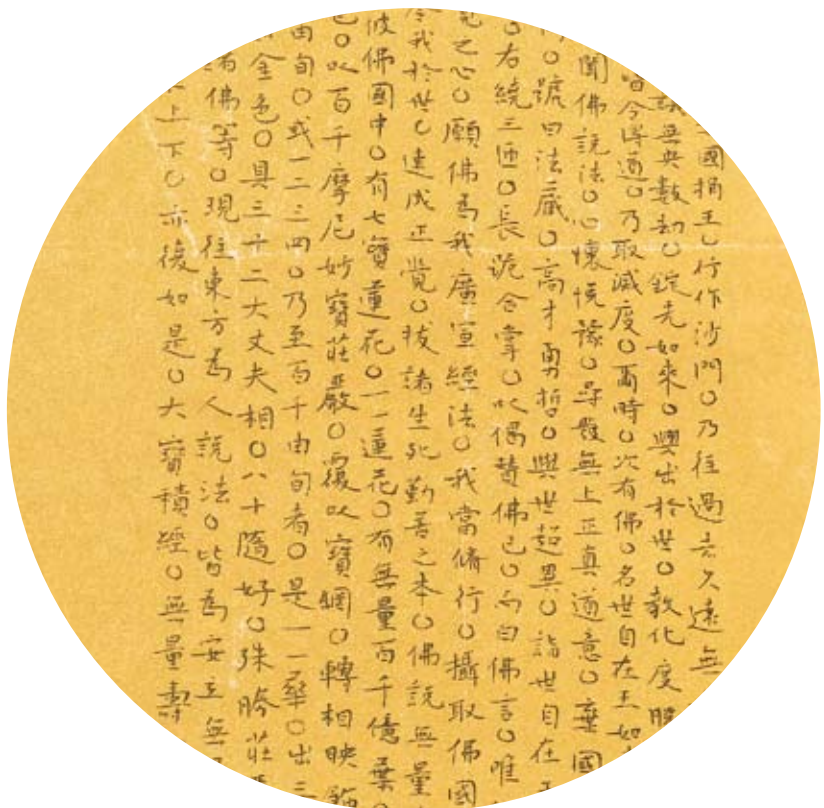 國捐王〇行作沙門〇乃往過去久遠無
議無央數劫〇錠光如來〇興出於世〇教化度脫
皆令得道〇乃取滅度〇爾時〇次有佛〇名世自在王如
聞佛說法〇心懷悅豫〇尋發無上正真道意〇棄國
〇號曰法藏〇高才勇哲〇與世超異〇詣世自在王
〇右繞三匝〇長跪合掌〇以偈讚佛已〇而白佛言〇唯
覺之心〇願佛為我廣宣經法〇我當脩行〇攝取佛國
令我於世〇速成正覺〇拔諸生死勤苦之本〇佛說無量
彼佛國中〇有七寶蓮花〇一一蓮花〇有無量百千億葉〇
色〇以百千摩尼妙寶莊嚴〇覆以寶網〇轉相映飾
由旬〇或一二三四〇乃至百千由旬者〇是一一華〇出三
金色〇具三十二大丈夫相〇八十隨好〇殊勝莊
諸佛等〇現往東方為人說法〇皆為安立無
上下〇亦復如是〇大寶積經〇無量壽